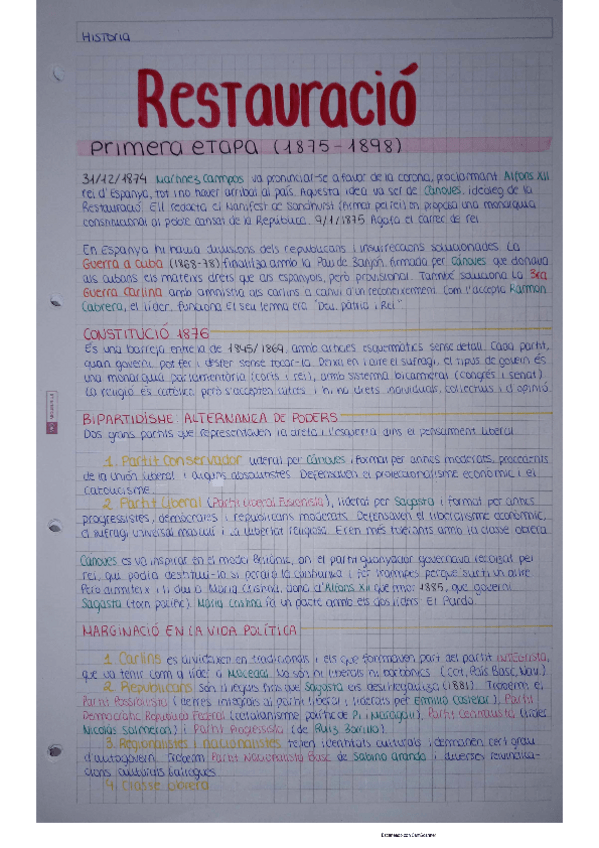 Historia
Restauració
Primera etapa (1875-1898)
31/12/1874. Martínez Campos va pronunciar-se a favor de la corona, proclamant Alfons XII
rei d'Espanya, tot i no haver arribat al país. Aquesta idea va ser de Cánoves, ideòleg de la
Restauració. Ell redacta el Manifest de Sandhurst (firmat pel rei) on proposa una monarquia
constitucional al poble cansat de la República. 9/1/1875 Agafa el càrrec de rei
En Espanya hi havia divisions dels republicans i insurreccions solucionades. La
Guerra a Cuba (1868-78) finalitza amb la Pau de Zanjón, firmada per Cánoves que donava
als cubans els mateixs drets que als espanyols, però provisional. També soluciona la 3ra
Guerra Carlina amb amnistia als carlins a canvi d'un reconeixement. Com l'accepta Ramon
Cabrera, el líder, funciona. El seu lema era "Deu, pàtria i Rei"
CONSTITUCIÓ 1876
És una barreja entre la de 1845/1869, amb articles esquemàtics sense detall. Cada partit,
quan governi, pot fer i desfer sense tocar-la. Deixa en l'aire el sufragi, el tipus de govern és
una monarquia parlamentària (corts i rei), amb sistema bicameral (congrés i senat).
La religió és catòlica però s'accepten altres i hi ha drets individuals, col·lectius i d'opinió.
BIPARTIDISME: ALTERNANÇA DE PODERS
Dos grans partits que representaven la dreta i l'esquerra dins el pensament liberal
1. Partit Conservador liderat per Cánoves i format per antics moderats, procedents
de la Unión Liberal i alguns absolutistes. Defensaven el proteccionisme econòmic i el
catolicisme.
2. Partit Liberal (Partit Liberal Fusionista), liderat per Sagasta i format per antics
progressistes, demòcrates i republicans moderats. Defensaven el lliberalisme econòmic,
el sufragi universal masculí i la llibertat religiosa. Eren més tolerants amb la classe obrera.
Cánoves es va inspirar en el model Britànic, on el partit guanyador governava recolzat pel
rei, que podia destituir-la si perdia la confiança i fer trampes perquè surti un altre
Però dimiteix i li diu a Maria Cristina, dona d'Alfons XII que mor 1885, que governi
Sagasta (torn pacífic). Maria Cristina fa un pacte amb els dos líders: El Pardo.
MARGINACIÓ EN LA VIDA POLÍTICA
1. Carlins es dividixen en tradicionals i els que formaven part del partit integrista,
que va tenir com a líder a Nocedal. No són ni liberals ni borbònics. (Cat, País Basc, Nav.)
2. Republicans Són il·legals fins que Sagasta els deslegalitza (1881). Trobem el
Partit Possibilista (dretes integrats al partit liberal i liderats per Emilio Castelar), Partit
Democràtic Republicà Federal (catalanisme polític de Pi i Maragall), Partit Centralista (líder
Nicolás Salmerón) i Partit Progressista (de Ruiz Zorrilla).
3. Regionalistes i nacionalistes tenien identitats culturals i demanen cert grau
d'autogovern. Trobem Partit Nacionalista Basc de Sabino Arana i diverses reivindica-
cions culturals
4. Classe obrera
Escaneado con CamScanner